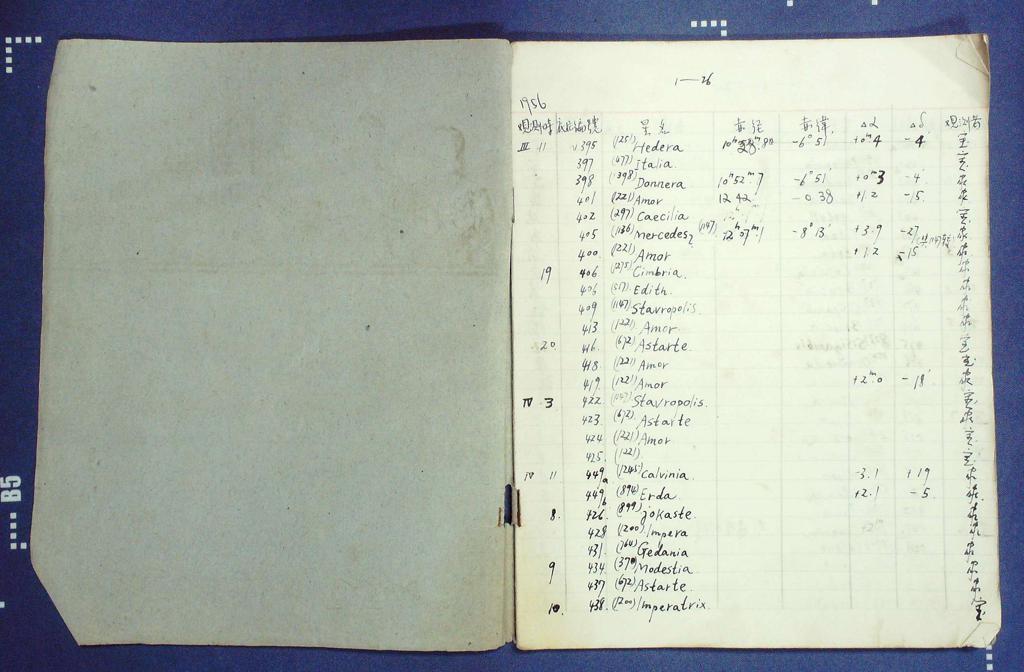 1—26
1956
观测时 底片编號 星名 赤径 赤緯 Δα Δδ 观测者
III 11 395 (1251) Hedera -6° 51' +0ᵐ4 -4
397 (477) Italia
398 (1398) Donnera 10ʰ52ᵐ.7 -6° 51' +0ᵐ3 -4'
401 (1221) Amor 12 42 -0 38 +1.2 -15
402 (297) Caecilia
405 (1136) Mercedes (1147) 12ʰ07ᵐ1 -8° 13' +3.9 -27
400 (1221) Amor +1.2 -15
19 406 (275) Cimbria
406 (517) Edith
409 (1147) Stavropolis
413 (1221) Amor
20 416 (672) Astarte
418 (1221) Amor
419 (1221) Amor +2ᵐ.0 -18'
IV 3 422 (1147) Stavropolis
423 (672) Astarte
424 (1221) Amor
425 (1221)
IV 11 449a (1245) Calvinia -3.1 +19
449b (894) Erda +2.1 -5
8 426 (899) Jokaste
428 (1200) Impera
431 (764) Gedania
9 434 (370) Modestia
437 (672) Astarte
10 438 (1200) Imperatrix